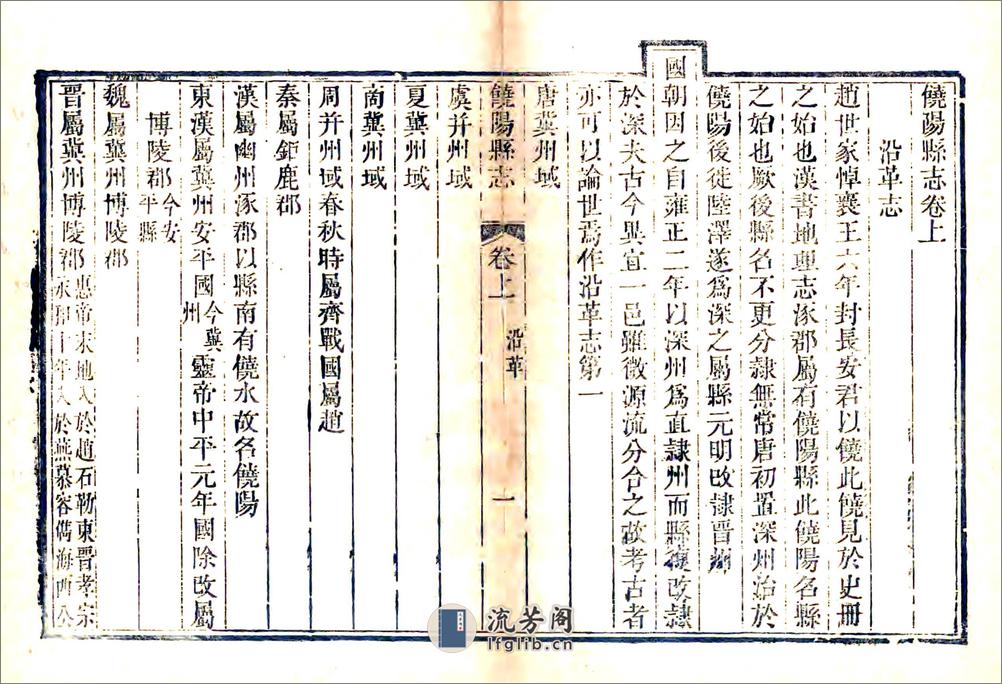 饒陽縣志卷上
沿革志
趙世家悼襄王六年封長安君以饒此饒見於史冊
之始也漢書地理志涿郡屬有饒陽縣此饒陽名縣
之始也厥後縣名不更分隸無常唐初置深州治於
饒陽後徙陸澤遂為深之屬縣元明改隸晉州
國朝因之自雍正二年以深州為直隸州而縣復改隸
於深夫古今異宜一邑雖微源流分合之故考古者
亦可以論世焉作沿革志第一
唐冀州域
虞并州域
饒陽縣志 卷上 沿革 一
夏冀州域
商冀州域
周并州域春秋時屬齊戰國屬趙
秦屬鉅鹿郡
漢屬幽州涿郡以縣南有饒水故名饒陽
東漢屬冀州安平國今冀州靈帝中平元年國除改屬
博陵郡今安平縣
魏屬冀州博陵郡
晉屬冀州博陵郡惠帝末地入於趙石勒東晉孝宗
永和十年入於燕慕容儁海西公
流芳阁
lfglib.cn